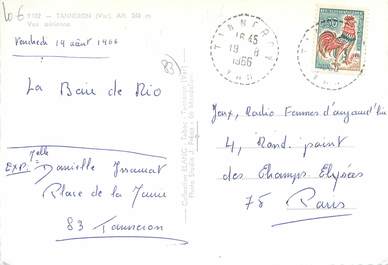 106
1102 - TANNERON (Var) Alt.
Vue aérienne
Vendredi 19 août 1966
83
La Baie de Rio
Melle
EXP: Danielle
Place de la
83 Tanneron
TANNERON
18 45
19 - 8
1966
VAR
Jeux, Radio Femmes d'aujourd'hui
4, Rond point
des Champs Elysées
75 Paris